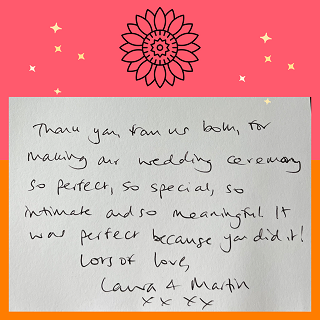 Thank you, from us both, for
making our wedding ceremony
so perfect, so special, so
intimate and so meaningful. It
was perfect because you did it!
Lots of love,
Laura & Martin
xx xx